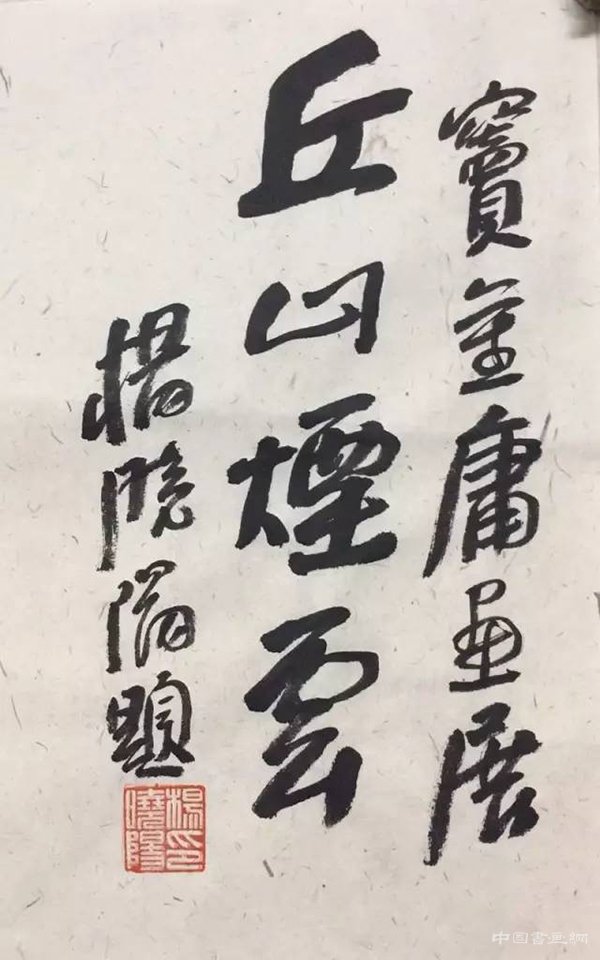 竇金庸畫展
丘山煙雲
楊曉陽題
楊印曉陽
中国書画網